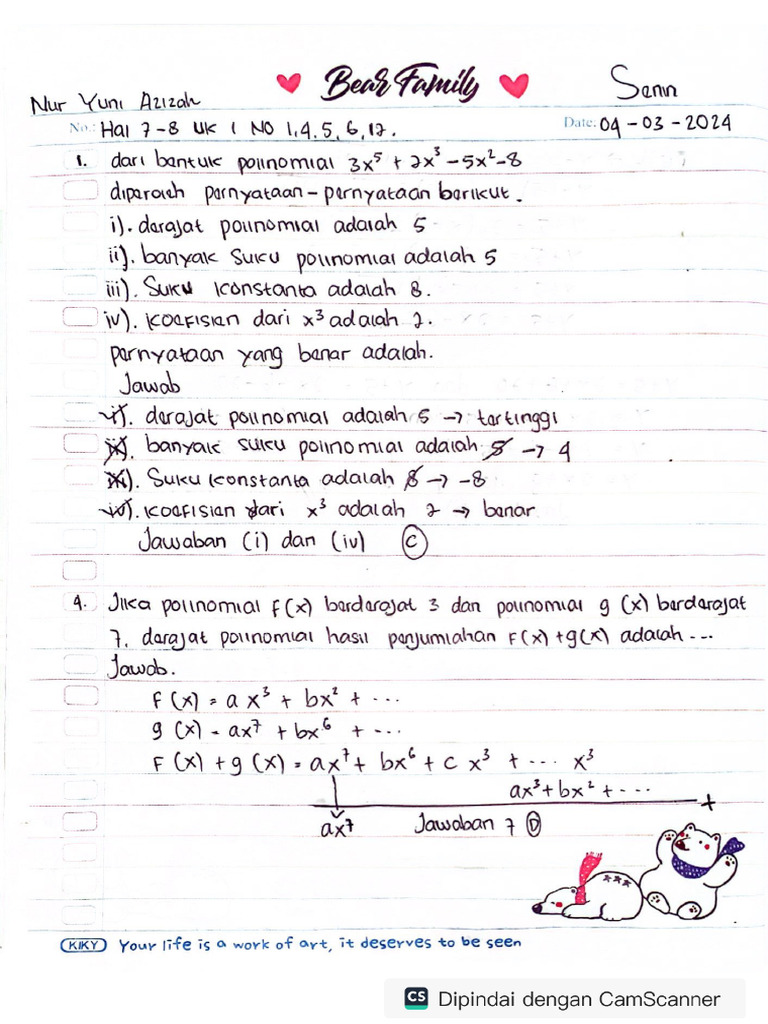 Bear Family
Senin
Nur Yuni Azizah
No.: Hal 7-8 UK 1 NO 1,4,5,6,12.
Date: 04-03-2024
1. dari bentuk polinomial 3x⁵ + 2x³ - 5x² - 8
diperoleh pernyataan-pernyataan berikut.
i). derajat polinomial adalah 5
ii). banyak suku polinomial adalah 5
iii). Suku konstanta adalah 8.
iv). koefisien dari x³ adalah 2.
pernyataan yang benar adalah.
Jawab
i). derajat polinomial adalah 5 → tertinggi
ii). banyak suku polinomial adalah 5 → 4
iii). Suku konstanta adalah 8 → -8
iv). koefisien dari x³ adalah 2 → benar
Jawaban (i) dan (iv) C
4. Jika polinomial f(x) berderajat 3 dan polinomial g (x) berderajat
7. derajat polinomial hasil penjumlahan f(x) + g(x) adalah ---
Jawab.
f (x) = a x³ + bx² + ...
g (x) = ax⁷ + bx⁶ + ...
f (x) + g (x) = ax⁷ + bx⁶ + c x³ + ... x³
ax³ + bx² + ...
+
ax⁷ Jawaban 7 D
KIKY Your life is a work of art, it deserves to be seen
CS Dipindai dengan CamScanner